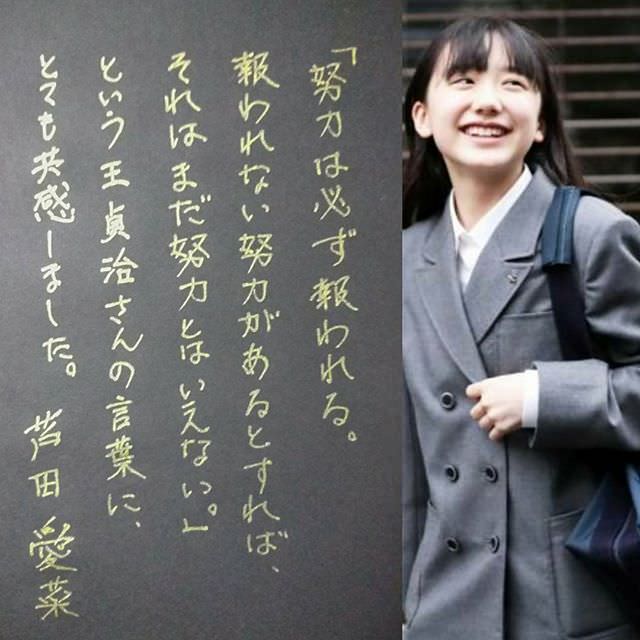 「努力は必ず報われる。
報われない努力があるとすれば、
それはまだ努力とはいえない。」
という王貞治さんの言葉に、
とても共感しました。 芦田愛菜